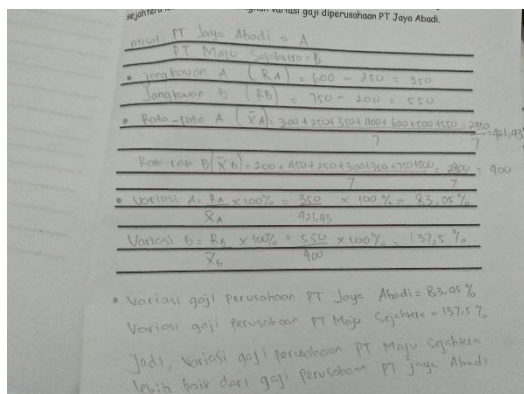 sejahtera variasi gaji diperusahaan PT Jaya Abadi.
misal : PT Jaya Abadi = A
PT Maju Sejahtera = B
• Jangkauan A (RA) = 600 - 250 = 350
Jangkauan B (RB) = 750 - 200 = 550
• Rata-rata A (X̄A) = 300 + 250 + 350 + 400 + 600 + 500 + 550 = 2950 = 421,43
7 7
Rata-rata B (X̄b) = 200 + 450 + 250 + 300 + 350 + 750 + = 2800 = 400
7 7
• Variasi A = RA x 100% = 350 x 100% = 83,05%
X̄A 421,43
Variasi B = RB x 100% = 550 x 100% = 137,5%
X̄b 400
• Variasi gaji perusahaan PT Jaya Abadi = 83,05%
Variasi gaji perusahaan PT Maju Sejahtera = 137,5%
Jadi, variasi gaji perusahaan PT Maju Sejahtera
lebih baik dari gaji perusahaan PT Jaya Abadi